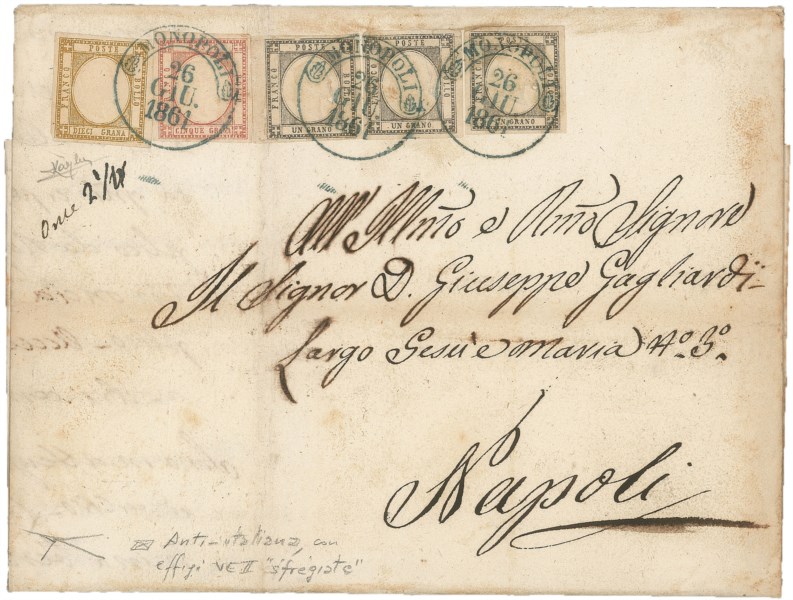 POSTE POSTE POSTE POSTE
FRANCO BOLLO FRANCO FRANCO FRANCO BOLLO FRANCO
DIECI GRANA CINQUE GRANA UN GRANO UN GRANO UN GRANO
MONOPOLI
26
GIU.
1861
MONOPOLI
26
GIU.
1861
MONOPOLI
26
GIU.
1861
Once 2
All'Illmo e Rmo Signore
Il Signor D. Giuseppe Gagliardi
Largo Gesù e Maria No. 3o.
Napoli
Anti-italiana, con
effigi VE II "sfregiate"